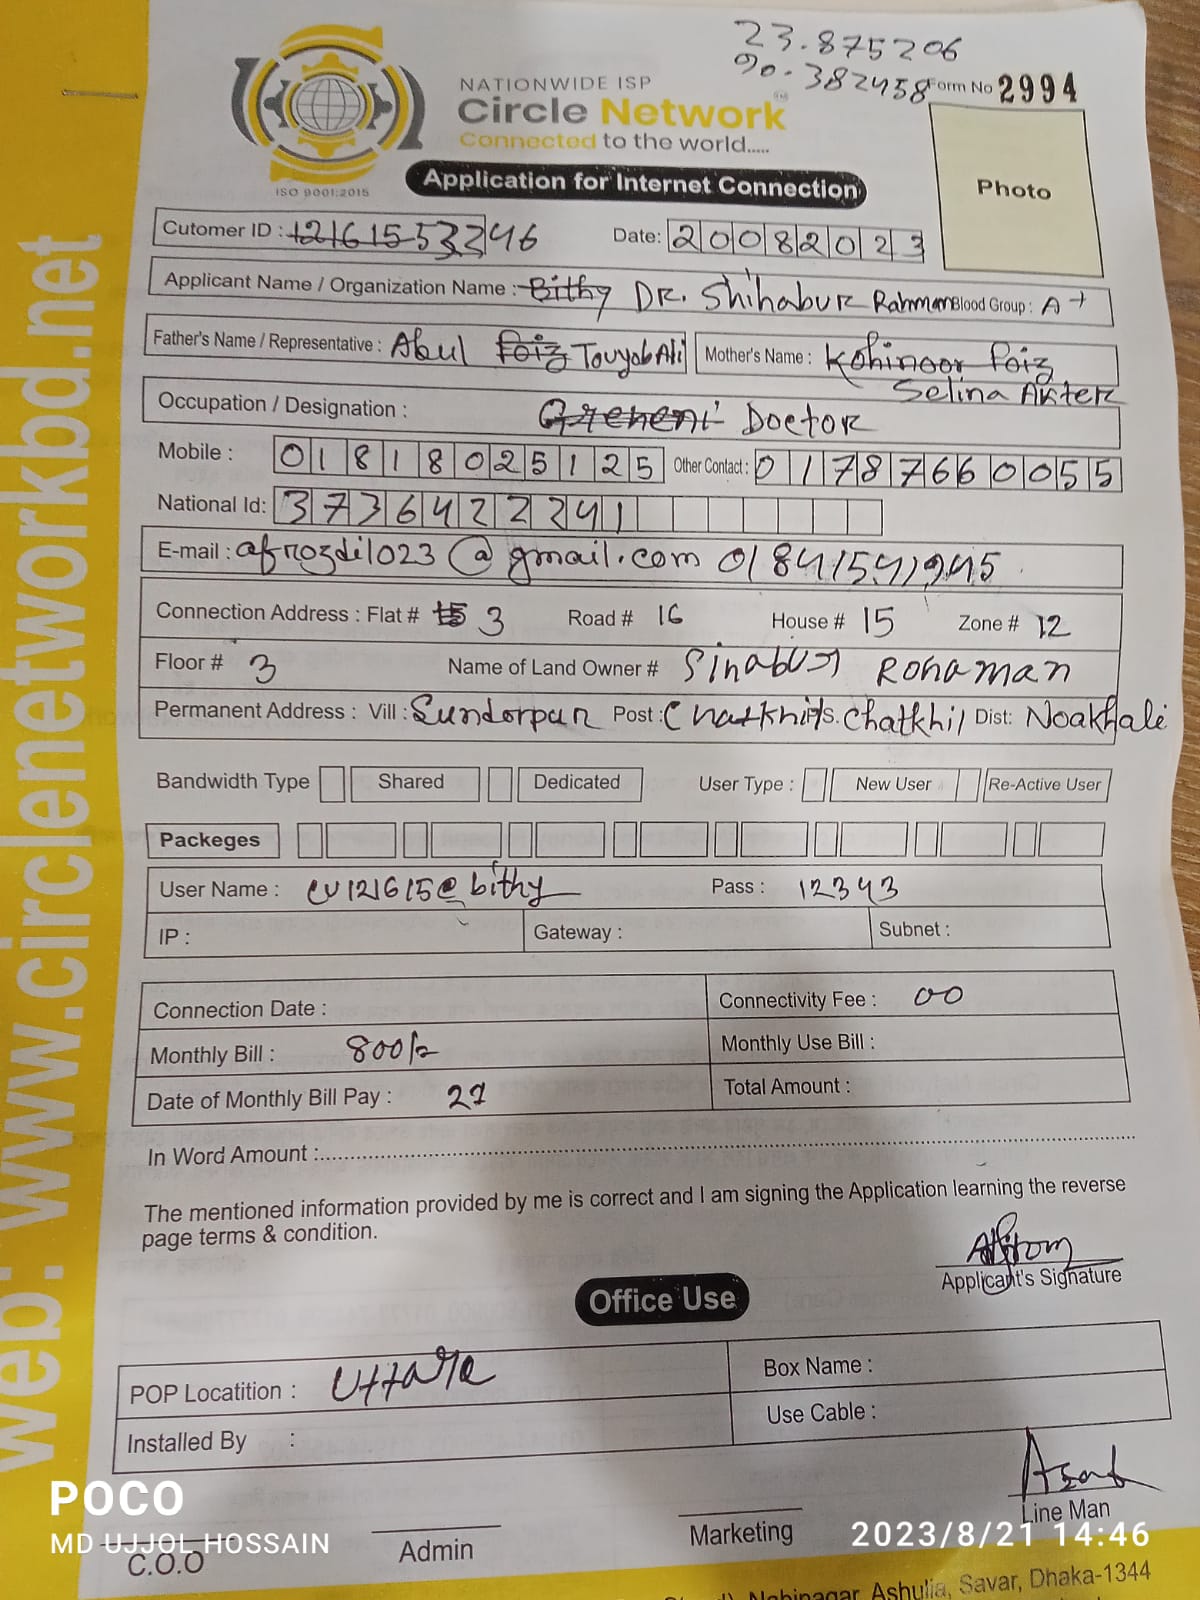 23.875206
90.382458
Form No 2994
NATIONWIDE ISP
Circle Network
Connected to the world.....
ISO 9001:2015
Application for Internet Connection
Photo
Cutomer ID : 12161553246
Date: 20082023
Applicant Name / Organization Name : Bithy DR. Shihabur Rahman Blood Group : A+
Father's Name / Representative : Abul Foiz Touyab Ali Mother's Name : Kohinoor Foiz
Selina Akter
Occupation / Designation : Greheni Doctor
Mobile : 01818025125 Other Contact : 01787660055
National Id: 3736422241
E-mail : afrozdil023@gmail.com 01841591945
Connection Address : Flat # 3 Road # 16 House # 15 Zone # 12
Floor # 3 Name of Land Owner # Sinabur Rohaman
Permanent Address : Vill : Sundorpur Post : Chatkhil P.S. Chatkhil Dist: Noakhali
Bandwidth Type Shared Dedicated User Type : New User Re-Active User
Packeges
User Name : cv121615@bithy Pass : 12343
IP : Gateway : Subnet :
Connection Date : Connectivity Fee : 00
Monthly Bill : 800/- Monthly Use Bill :
Date of Monthly Bill Pay : 27 Total Amount :
In Word Amount :
The mentioned information provided by me is correct and I am signing the Application learning the reverse
page terms & condition.
Applicant's Signature
Office Use
POP Locatition : Uttara Box Name :
Installed By : Use Cable :
Asad
Line Man
C.O.O Admin Marketing
web: www.circlenetworkbd.net
Nabinagar Ashulia, Savar, Dhaka-1344
POCO
MD UJJOL HOSSAIN
2023/8/21 14:46